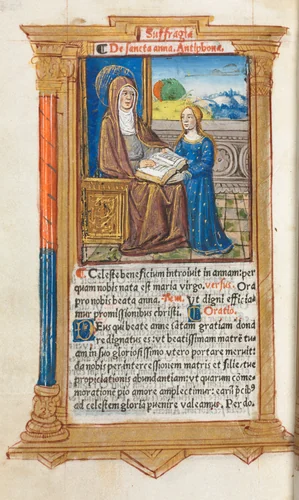 Suffragia
De sancta anna. Antiphona.
Celeste beneficium introiuit in annam: per
quam nobis nata est maria virgo. versus. Ora
pro nobis beata anna. Ut digni efficia
mur promissionibus christi. Oratio.
Deus qui beate anne tātam gratiam dona
re dignatus es vt beatissimam matrē tu
am in suo gloriosissimo vtero portare meruit:
da nobis per intercessionem matris et filie, tue
propiciationis abundantiam: vt quarum comme
moratione pio amore amplectimur: earū p̄cibꝰ
ad celestem gloriā puenire valeamus. Per do.